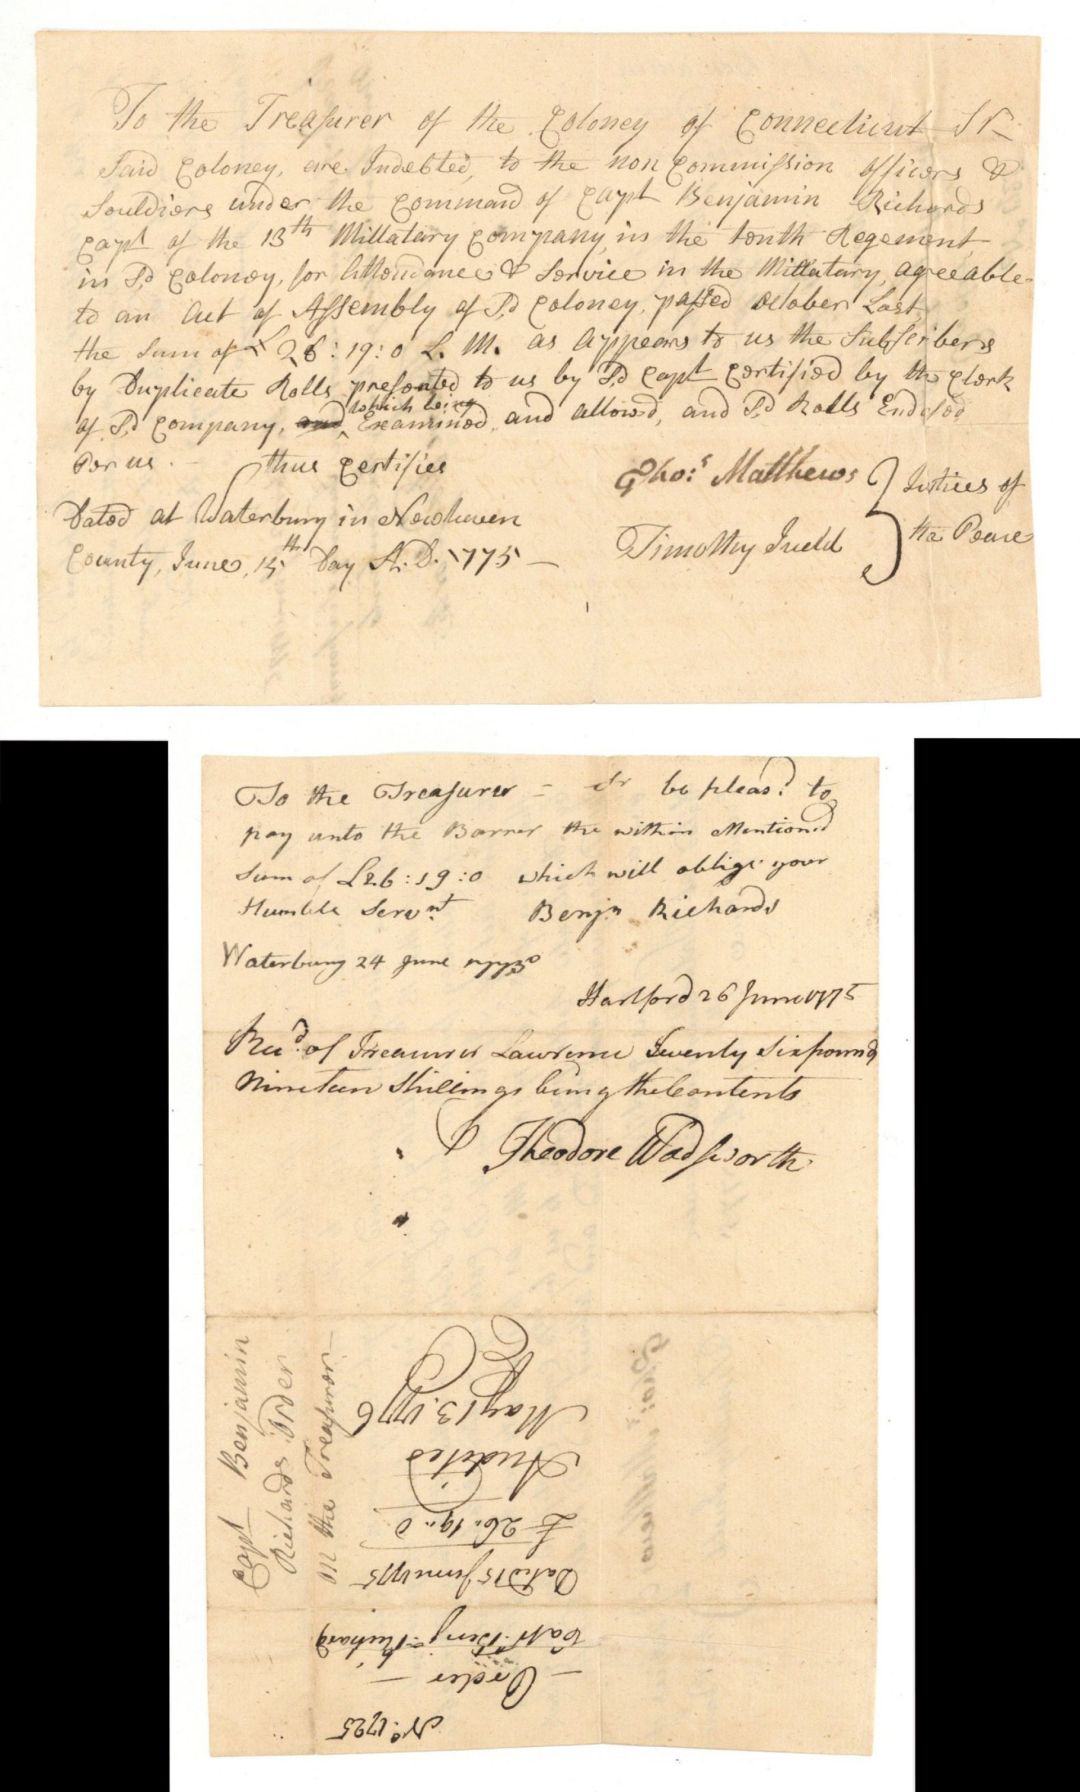 To the Treasurer of the Coloney of Connecticut Sr
Said Coloney, are Indebted, to the non Commission officers &
Souldiers under the Command of Capt Benjamin Richards
Capt of the 13th Millatary Company in the tenth Regement
in Sd Coloney, for Attendance & Service in the Millatary, agreeable
to an Act of Assembly of Sd Coloney passed October Last
the Sum of £ 26 : 19 : 0 L. M. as Appears to us the Subscribers
by Duplicate Rolls presented to us by Sd Capt Certified by the Clerk
of Sd Company, and which being Examined, and allowd, and Sd Rolls Endosed
Per us. — thus Certifies
Thos Matthews
Justices of
Dated at Waterbury in Newhaven
Timothy Judd
the Peace
County, June, 15th Day A. D. 1775 —
To the Treasurer — Sr be pleasd to
pay unto the Barrer the within Mentiond
Sum of £26 : 19 : 0 which will oblige your
Humble Servnt Benjn Richards
Waterbury 24 June 1775
Hartford 26 June 1775
Recd of Treasurer Lawrence Twenty Six pound
Nineteen Shillings being the Contents
Theodore Wadsworth
Capt Benjamin
Richards Order
on the Treasuror
No. 1725
— Order —
Capt. Benj. Richard
Dated 15 June 1775
£ 26 .. 19 .. 0
Audited
May 13. 1776